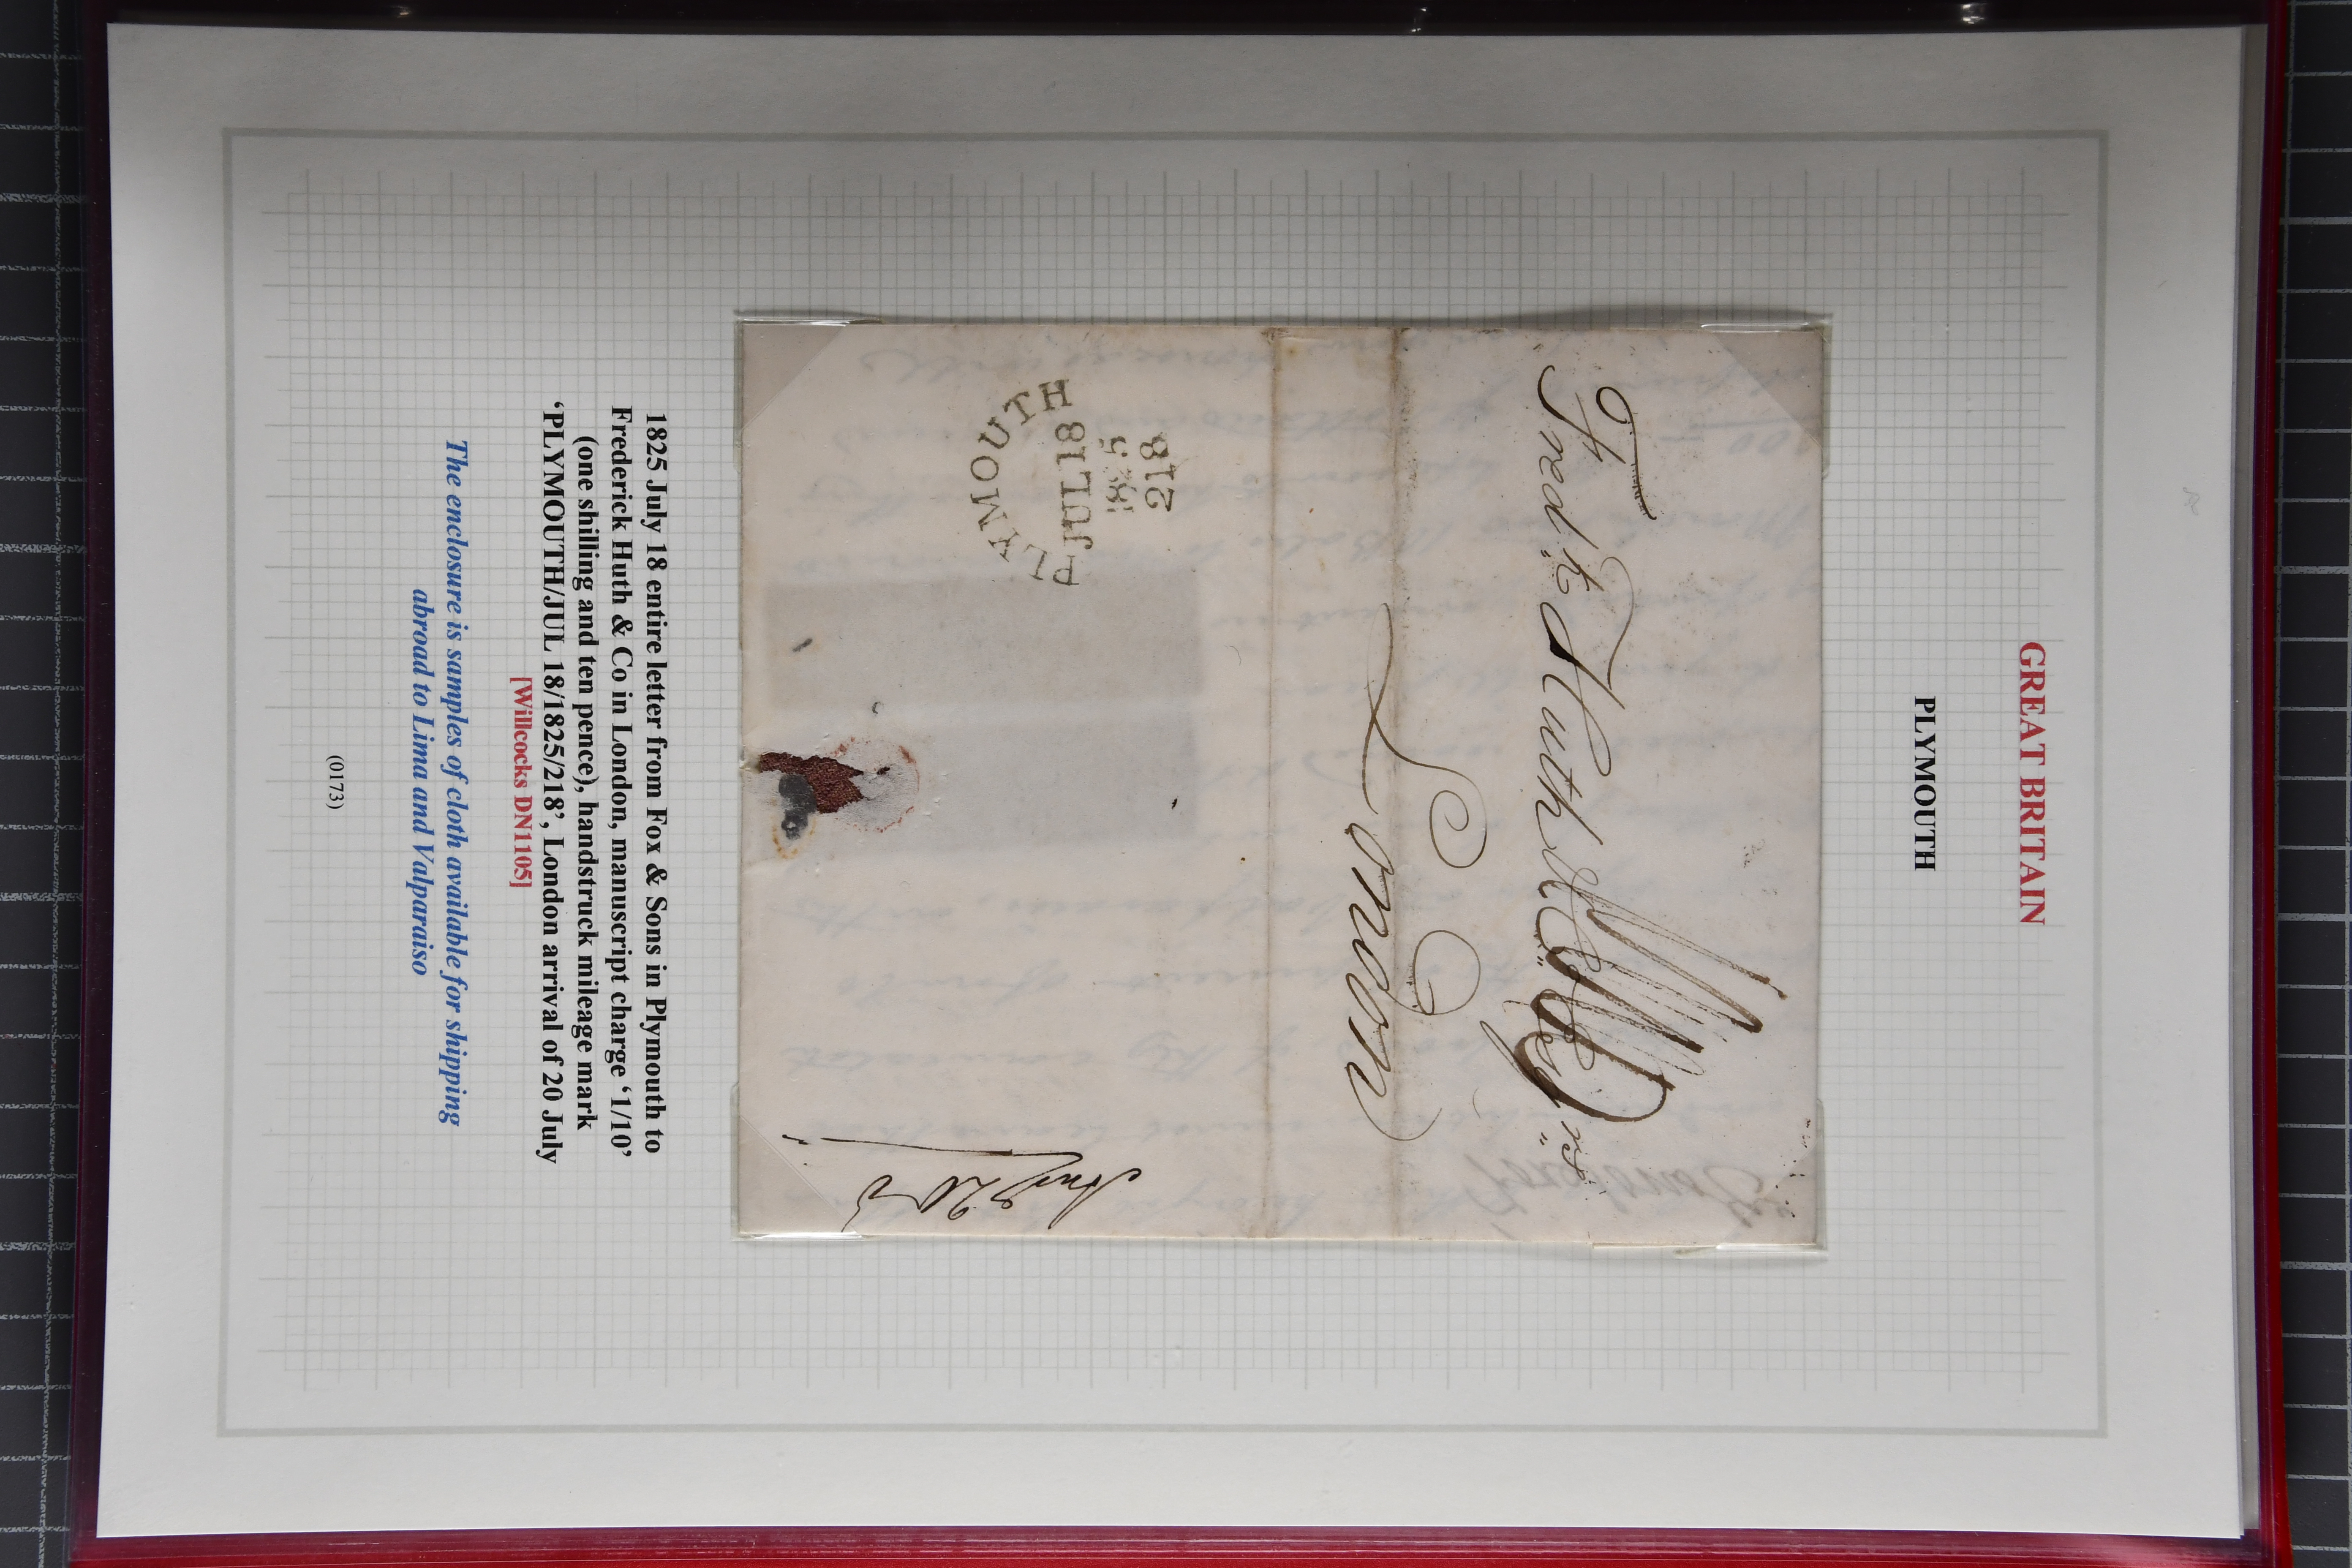 GREAT BRITAIN
PLYMOUTH
Fred.k Huth & Co
London
PLYMOUTH
JUL 18
1825
218
1825 July 18 entire letter from Fox & Sons in Plymouth to
Frederick Huth & Co in London, manuscript charge ‘1/10’
(one shilling and ten pence), handstruck mileage mark
‘PLYMOUTH/JUL 18/1825/218’, London arrival of 20 July
[Willcocks DN1105]
The enclosure is samples of cloth available for shipping
abroad to Lima and Valparaiso
(0173)